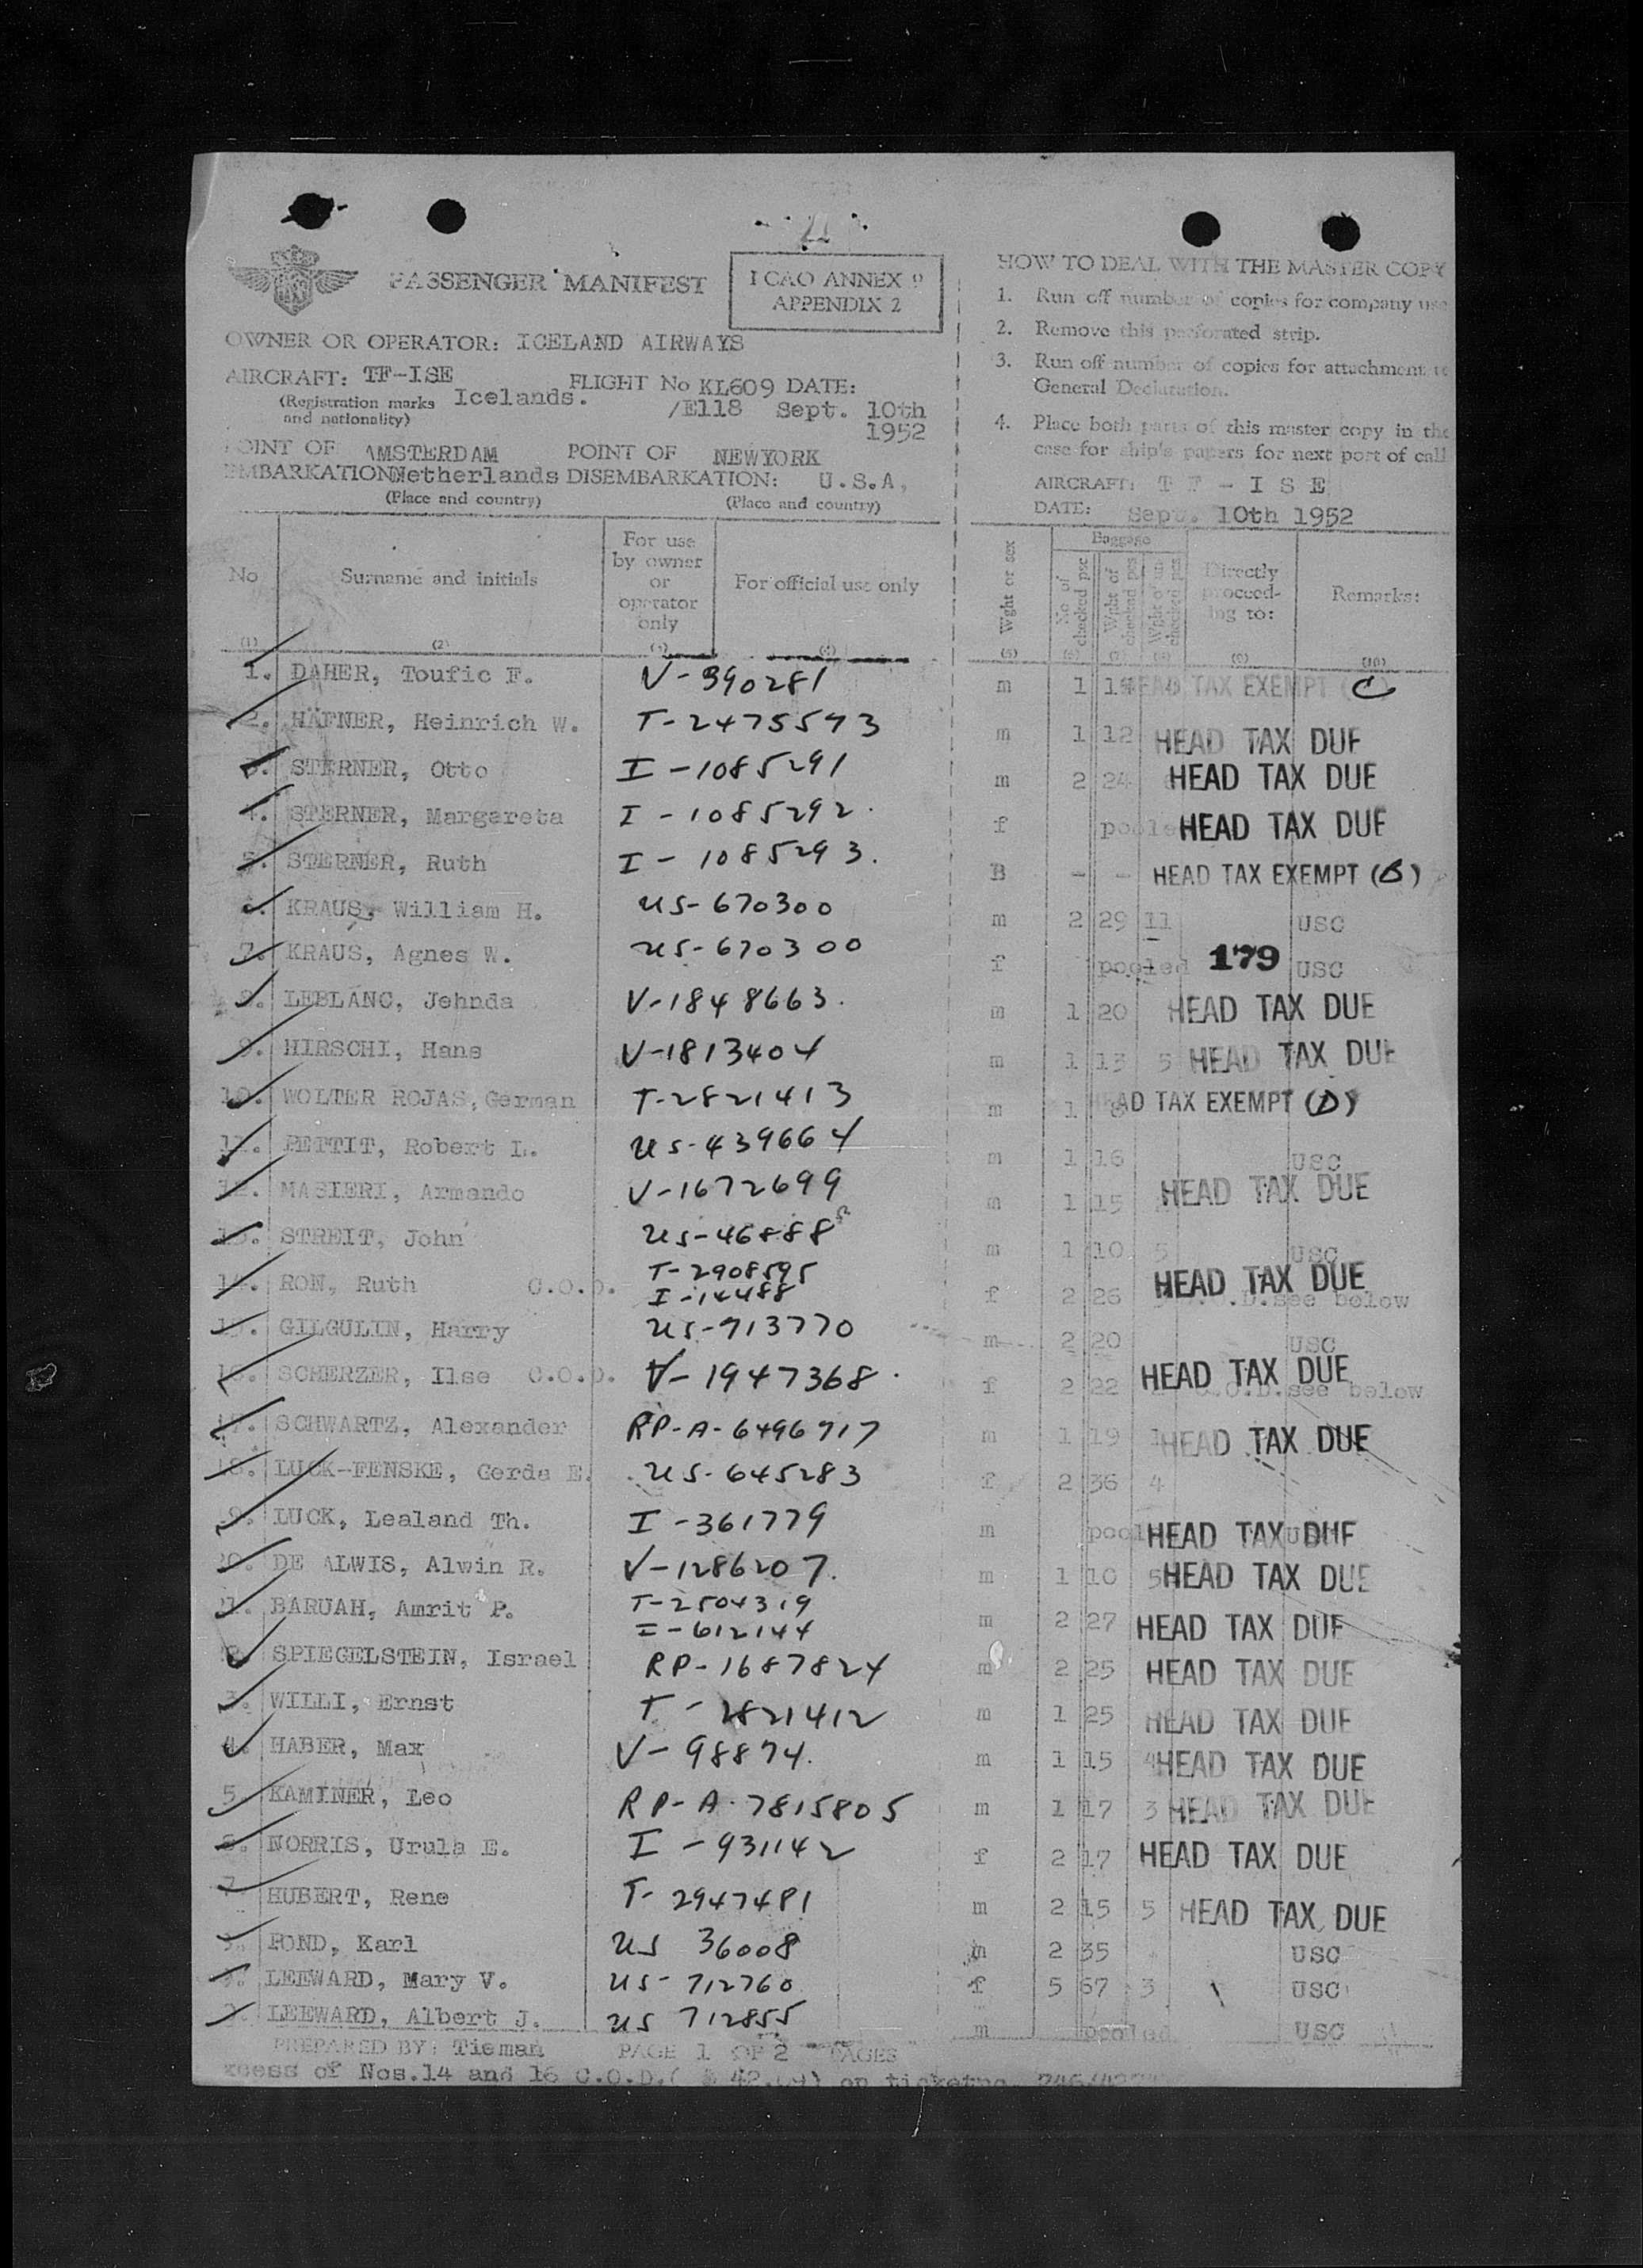 PASSENGER MANIFEST
ICAO ANNEX 9
APPENDIX 2
OWNER OR OPERATOR: ICELAND AIRWAYS
AIRCRAFT: TF-ISE FLIGHT No KL609 DATE:
(Registration marks and nationality) Icelands. /E118 Sept. 10th 1952
POINT OF EMBARKATION AMSTERDAM Netherlands POINT OF DISEMBARKATION: NEWYORK U.S.A,
(Place and country) (Place and country)
HOW TO DEAL WITH THE MASTER COPY
1. Run off number of copies for company use
2. Remove this perforated strip.
3. Run off number of copies for attachment to
General Declaration.
4. Place both parts of this master copy in the
case for ship's papers for next port of call
AIRCRAFT: T F - I S E
DATE: Sept. 10th 1952
No Surname and initials For use by owner or operator only For official use only Wght or sex Baggage No of checked pcs Wght of checked pcs Wght of un- checked pcs Directly proceed- ing to: Remarks:
(1) (2) (3) (4) (5) (6) (7) (8) (9) (10)
1. DAHER, Toufic F. V-390281 m 1 HEAD TAX EXEMPT (C)
2. HAFNER, Heinrich W. T-2475573 m 1 12 HEAD TAX DUE
3. STERNER, Otto I-1085291 m 2 24 HEAD TAX DUE
4. STERNER, Margareta I-1085292. f pooled HEAD TAX DUE
5. STERNER, Ruth I-1085293. B - - HEAD TAX EXEMPT (B)
6. KRAUS, William H. US-670300 m 2 29 11 USC
7. KRAUS, Agnes W. US-670300 f pooled 179 USC
8. LEBLANC, Jehnda V-1848663. m 1 20 HEAD TAX DUE
9. HIRSCHI, Hans V-1813404 m 1 13 5 HEAD TAX DUE
10. WOLTER ROJAS, German T-2821413 m 1 8 HEAD TAX EXEMPT (D)
11. PETTIT, Robert L. US-439664 m 1 16 USC
12. MASIERI, Armando V-1672699 m 1 15 HEAD TAX DUE
13. STREIT, John US-46888 m 1 10 5 USC
14. RON, Ruth C.O.D. T-2908595 I-14488 f 2 26 HEAD TAX DUE C.O.D. see below
15. GILGULIN, Harry US-713770 m 2 20 USC
16. SCHERZER, Ilse C.O.D. V-1947368. f 2 22 HEAD TAX DUE C.O.D. see below
17. SCHWARTZ, Alexander RP-A-6496717 m 1 19 1 HEAD TAX DUE
18. LUCK-FENSKE, Gerda E. US-645283 f 2 36 4
19. LUCK, Lealand Th. I-361779 m pooled HEAD TAX DUE
20. DE ALWIS, Alwin R. V-1286207. m 1 10 5 HEAD TAX DUE
21. BARUAH, Amrit P. T-2504319 I-612144 m 2 27 HEAD TAX DUE
SPIEGELSTEIN, Israel RP-1687824 m 2 25 HEAD TAX DUE
3. WILLI, Ernst T-2821412 m 1 25 HEAD TAX DUE
4. HABER, Max V-98874. m 1 15 4 HEAD TAX DUE
5. KAMINER, Leo RP-A-7815805 m 1 17 3 HEAD TAX DUE
6. NORRIS, Urula E. I-931142 f 2 17 HEAD TAX DUE
7 HUBERT, Rene T-2947481 m 2 15 5 HEAD TAX DUE
POND, Karl US 36008 m 2 35 USC
LEEWARD, Mary V. US-712760 f 5 67 3 USC
LEEWARD, Albert J. US 712855 m pooled USC
PREPARED BY: Tieman PAGE 1 OF 2 PAGES
xcess of Nos.14 and 16 C.O.D.( $ 42.09) on ticketno.